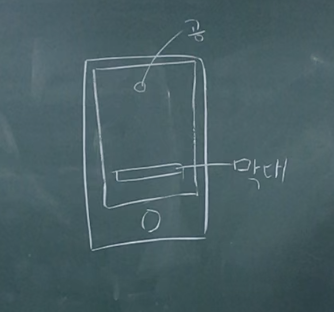 공
막대